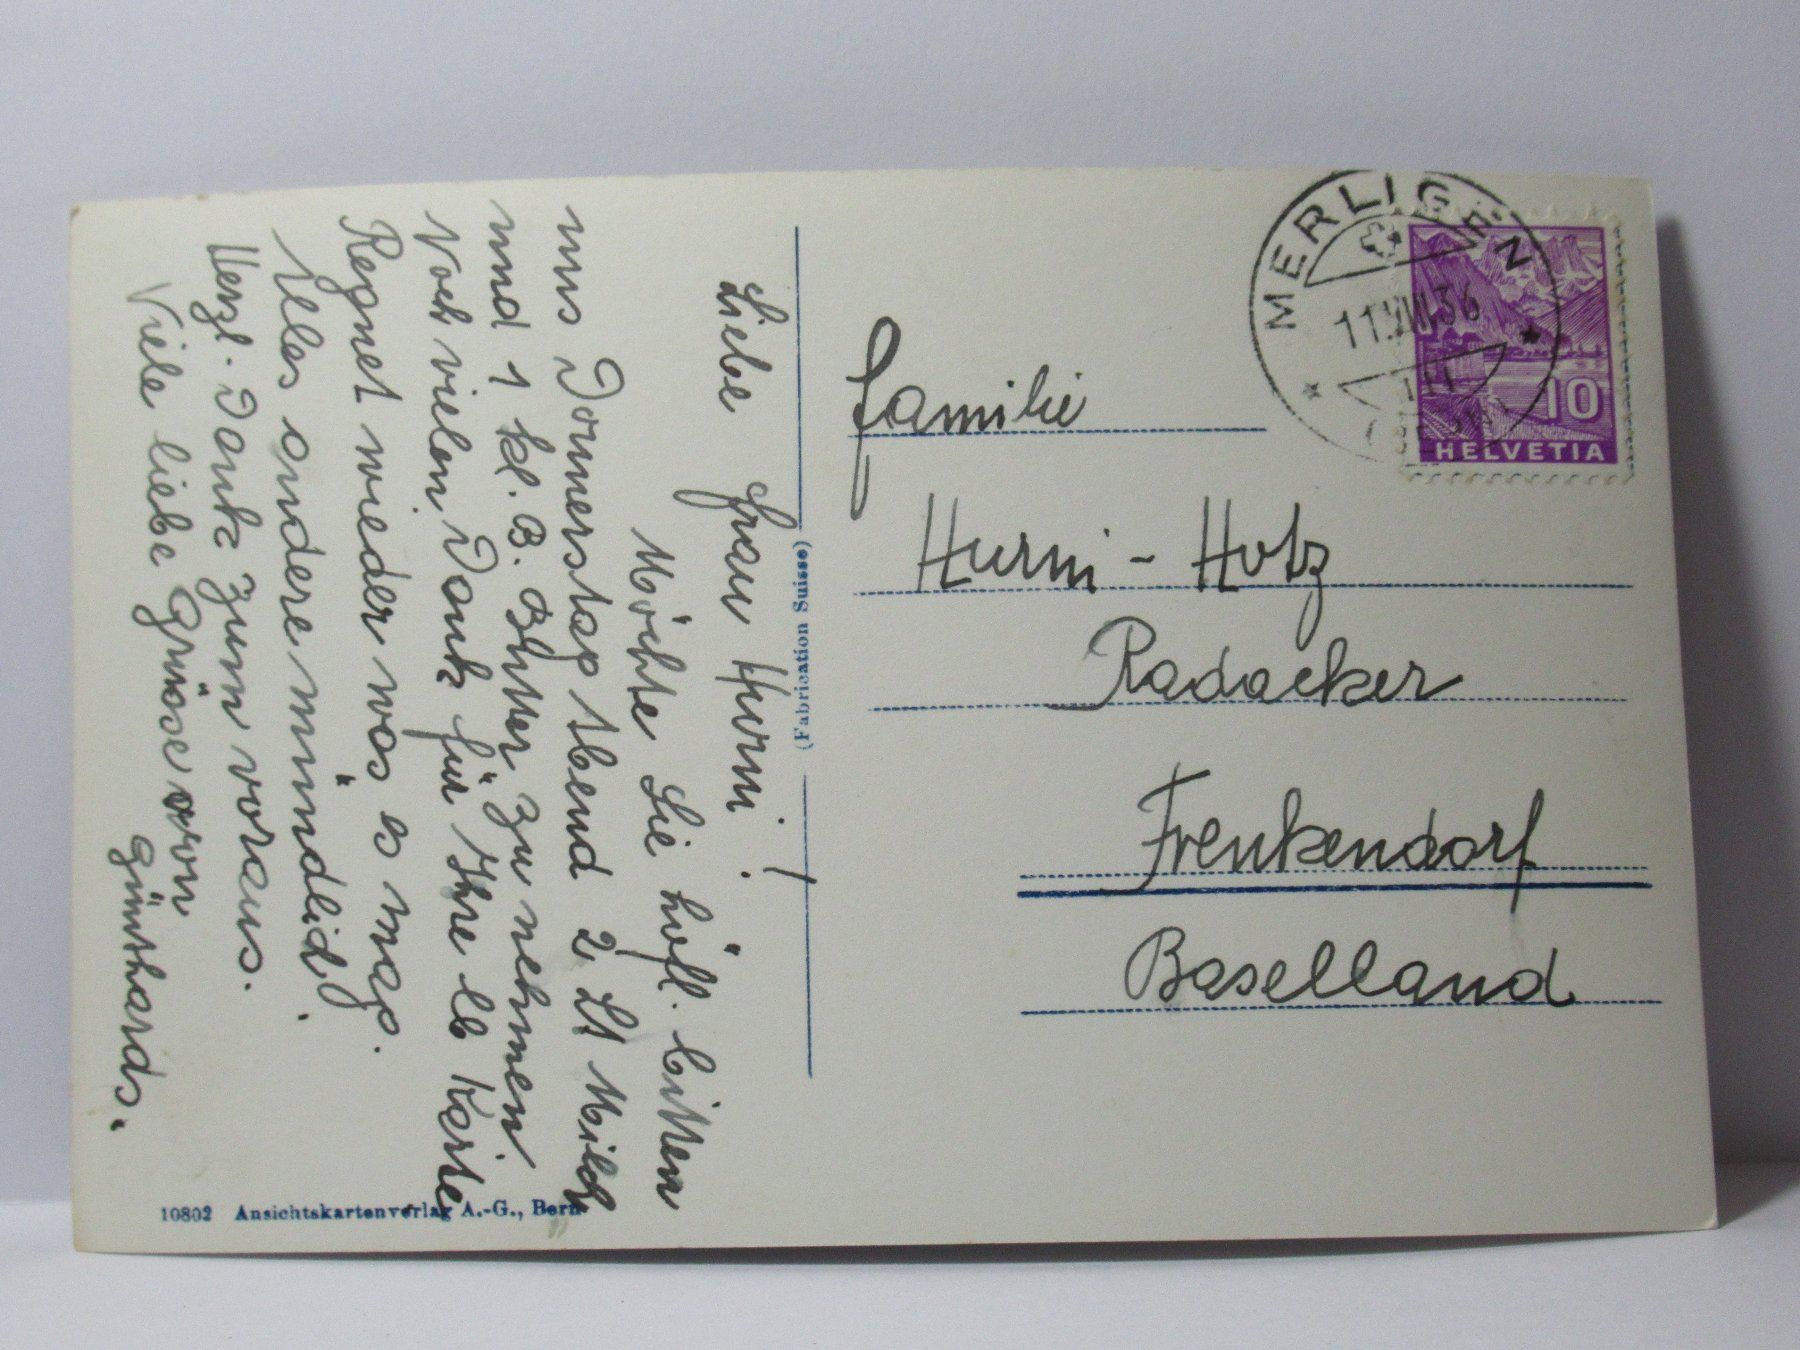 Liebe Frau Hurni!
Möchte Sie höfl. bitten
uns Donnerstag Abend 2 Lt Milch
und 1 kl. B. Butter zu nehmen
Noch vielen Dank für Ihre lb Karte
Regnet wieder was es mag.
Alles andere mündlich.
Herzl. Dank zum voraus.
Viele liebe Grüsse von
Günthards.
10802 Ansichtskartenverlag A.-G., Bern
(Fabrication Suisse)
MERLIGEN
11.VIII.36
HELVETIA
10
Familie
Hurni - Hotz
Radacker
Frenkendorf
Baselland